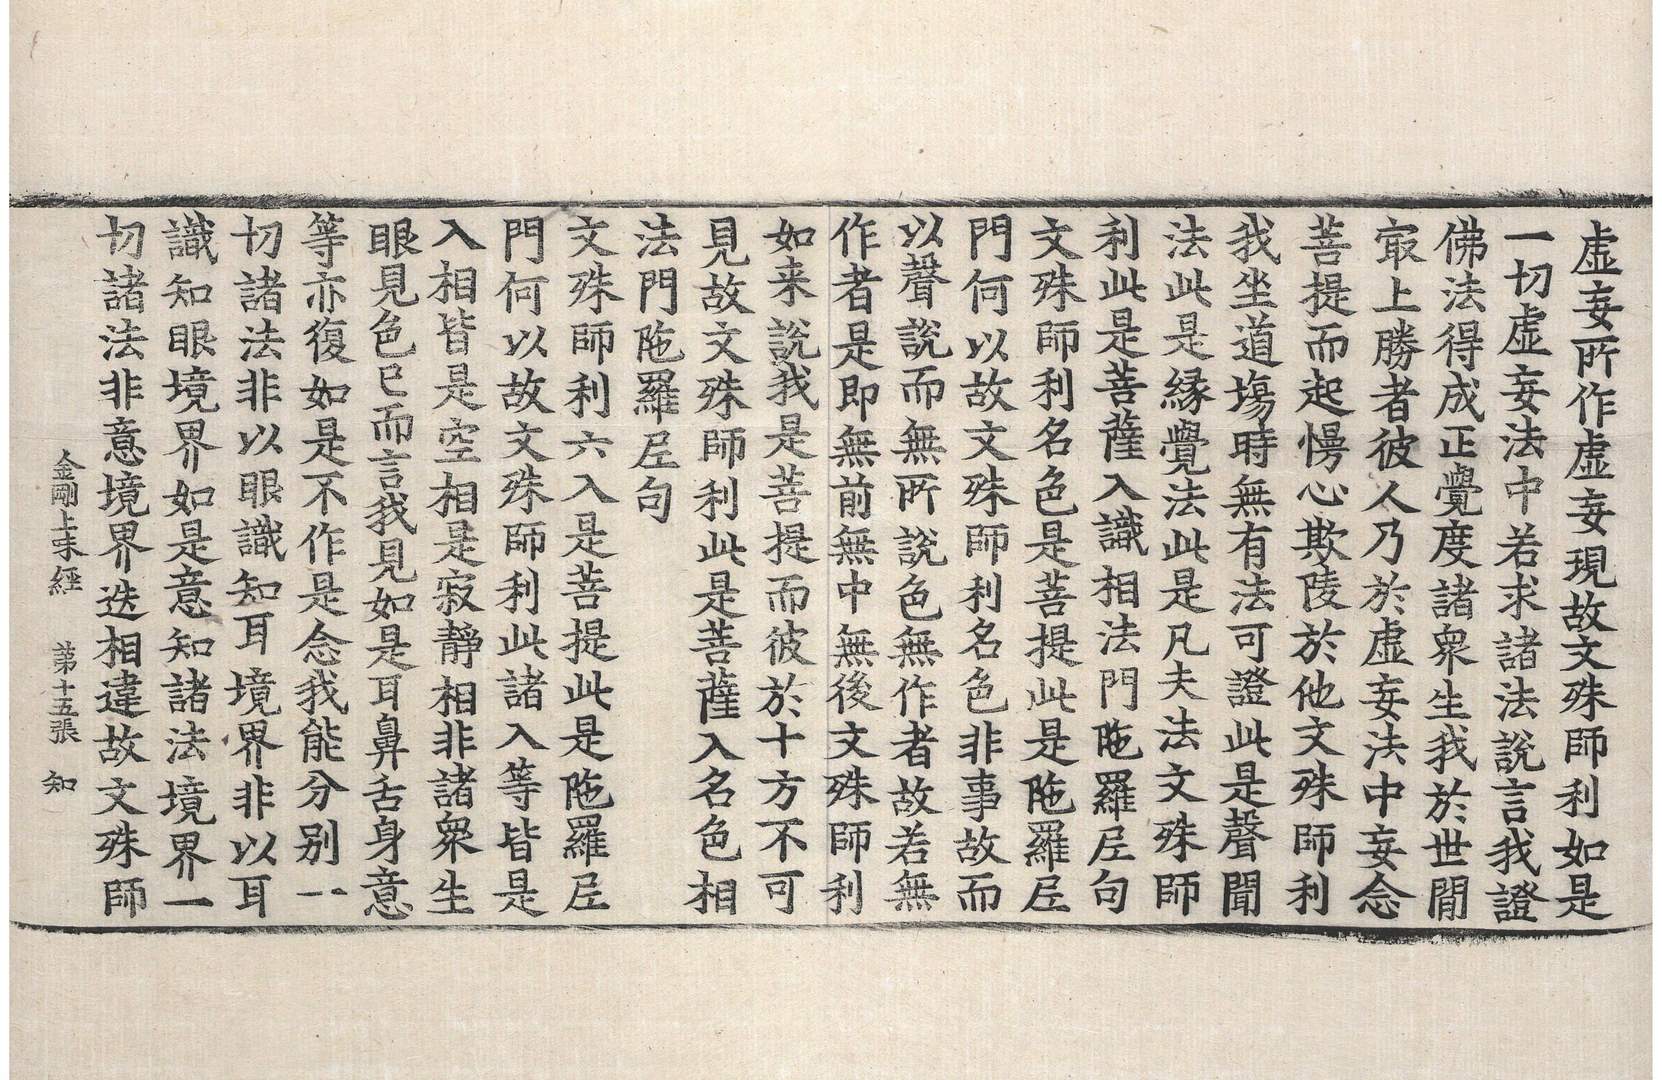 虛妄所作虛妄現故文殊師利如是
一切虛妄法中若求諸法說言我證
佛法得成正覺度諸衆生我於世間
㝡上勝者彼人乃於虛妄法中妄念
菩提而起慢心欺陵於他文殊師利
我坐道場時無有法可證此是聲聞
法此是緣覺法此是凡夫法文殊師
利此是菩薩入識相法門陁羅尼句
文殊師利名色是菩提此是陁羅尼
門何以故文殊師利名色非事故而
以聲說而無所說色無作者故若無
作者是即無前無中無後文殊師利
如来說我是菩提而彼於十方不可
見故文殊師利此是菩薩入名色相
法門陁羅尼句
文殊師利六入是菩提此是陁羅尼
門何以故文殊師利此諸入等皆是
入相皆是空相是寂靜相非諸衆生
眼見色已而言我見如是耳鼻舌身意
等亦復如是不作是念我能分別一
切諸法非以眼識知耳境界非以耳
識知眼境界如是意知諸法境界一
切諸法非意境界迭相違故文殊師
金剛上味經 第十五張 知